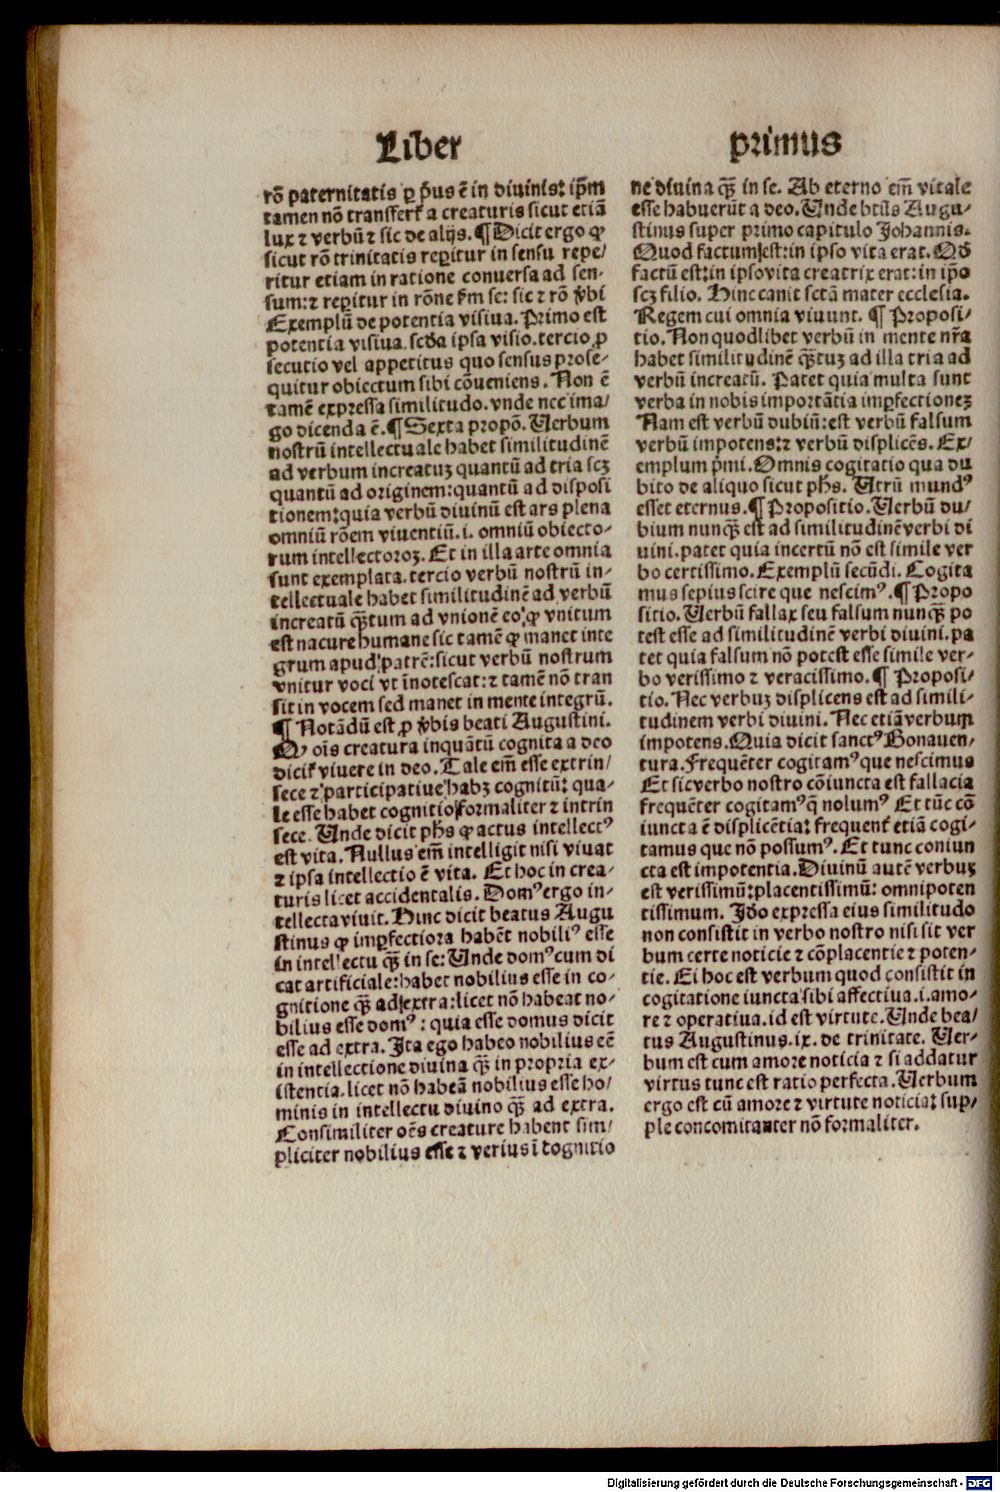 Liber primus
rō paternitatis ꝑ p̄us ē in diuinis: ip̄m
tamen nō transferr̄ a creaturis sicut etiā
lux ⁊ verbū ⁊ sic de alijs. ¶ Dicit ergo ꝙ
sicut rō trinitatis reꝑitur in sensu repe/
ritur etiam in ratione conuersa ad sen-
sum: ⁊ reꝑitur in rōne ẜm se: sic ⁊ rō v̄bi
Exemplū de potentia visiua. Primo est
potentia visiua. scďa ipsa visio. tercio ꝓ
secutio vel appetitus quo sensus prose-
quitur obiectum sibi cōueniens. Non ē
tamē expressa similitudo. vnde nec ima/
go dicenda ē. ¶ Sexta propō. Verbum
nostrū intellectuale habet similitudinē
ad verbum increatuꝫ quantū ad tria scꝫ
quantū ad originem: quantū ad disposi
tionem: quia verbū diuinū est ars plena
omniū rōem viuentiū .i. omniū obiecto-
rum intellectoroꝫ. Et in illa arte omnia
sunt exemplata. tercio verbū nostrū in-
tellectuale habet similitudinē ad verbū
increatū qꝫ̄tum ad vnionē eo ꝙ vnitum
est nature humane sic tamē ꝙ manet inte
grum apud patrē: sicut verbū nostrum
vnitur voci vt īnotescat: ⁊ tamē nō tran
sit in vocem sed manet in mente integrū.
¶ Notādū est ꝓ v̄bis beati Augustini.
Q ois̄ creatura inquātū cognita a deo
dicir̄ viuere in deo. Tale em̄ esse extrin/
sece ⁊ participatiue habꝫ cognitū: qua-
le esse habet cognitio formaliter ⁊ intrin
sece. Unde dicit ph̄s ꝙ actus intellectꝰ
est vita. Nullus em̄ intelligit nisi viuat
⁊ ipsa intellectio ē vita. Et hoc in crea-
turis licet accidentalis. Domꝰ ergo in-
tellecta viuit. Hinc dicit beatus Augu
stinus ꝙ imꝑfectiora habēt nobiliꝰ esse
in intellectu qꝫ̄ in se: Unde domꝰ cum di
cat artificiale: habet nobilius esse in co-
gnitione qꝫ̄ ad extra: licet nō habeat no-
bilius esse domꝰ : quia esse domus dicit
esse ad extra. Ita ego habeo nobilius eē
in intellectione diuina qꝫ̄ in propria ex-
istentia. licet nō habeā nobilius esse ho/
minis in intellectu diuino qꝫ̄ ad extra.
Consimiliter oēs creature habent sim/
pliciter nobilius esse ⁊ verius ī cognitio
ne diuina qꝫ̄ in se. Ab eterno em̄ vitale
esse habuerūt a deo. Unde btūs Augu/
stinus super primo capitulo Johannis.
Quod factum est: in ipso vita erat. Qď
factū est: in ipso vita creatrix erat: in ip̄o
scꝫ filio. Hinc canit sctā mater ecclesia.
Regem cui omnia viuunt. ¶ Proposi/
tio. Non quodlibet verbū in mente nr̄a
habet similitudinē qꝫ̄tuꝫ ad illa tria ad
verbū increatū. Patet quia multa sunt
verba in nobis importātia imꝑfectioneꝫ
Nam est verbū dubiū: est verbū falsum
verbū impotens: ⁊ verbū displicēs. Ex/
emplum p̄mi. Omnis cogitatio qua du
bito de aliquo sicut ph̄s. Utrū mundꝰ
esset eternus. ¶ Propositio. Verbū du/
bium nunqꝫ̄ est ad similitudinē verbi di
uini. patet quia incertū nō est simile ver
bo certissimo. Exemplū secūdi. Cogita
mus sepius scire que nescimꝰ. ¶ Propo
sitio. Verbū fallax seu falsum nunqꝫ̄ po
test esse ad similitudinē verbi diuini. pa
tet quia falsum nō potest esse simile ver-
bo verissimo ⁊ veracissimo. ¶ Proposi/
tio. Nec verbuꝫ displicens est ad simili-
tudinem verbi diuini. Nec etiā verbum
impotens. Quia dicit sanctꝰ Bonauen/
tura. Frequēter cogitamꝰ que nescimus
Et sic verbo nostro cōiuncta est fallacia
frequēter cogitamꝰ q̄ nolumꝰ Et tūc cō
iuncta ē displicētia: frequent̄ etiā cogi-
tamus que nō possumꝰ. Et tunc coniun
cta est impotentia. Diuinū autē verbuꝫ
est verissimū: placentissimū: omnipoten
tissimum. Iďo expressa eius similitudo
non consistit in verbo nostro nisi sit ver
bum certe noticie ⁊ cōplacentie ⁊ poten-
tie. Et hoc est verbum quod consistit in
cogitatione iuncta sibi affectiua .i. amo-
re ⁊ operatiua. id est virtute. Unde bea/
tus Augustinus .ix. de trinitate. Ver-
bum est cum amore noticia ⁊ si addatur
virtus tunc est ratio perfecta. Verbum
ergo est cū amore ⁊ virtute noticia: sup/
ple concomitanter nō formaliter.
Digitalisierung gefördert durch die Deutsche Forschungsgemeinschaft - DFG